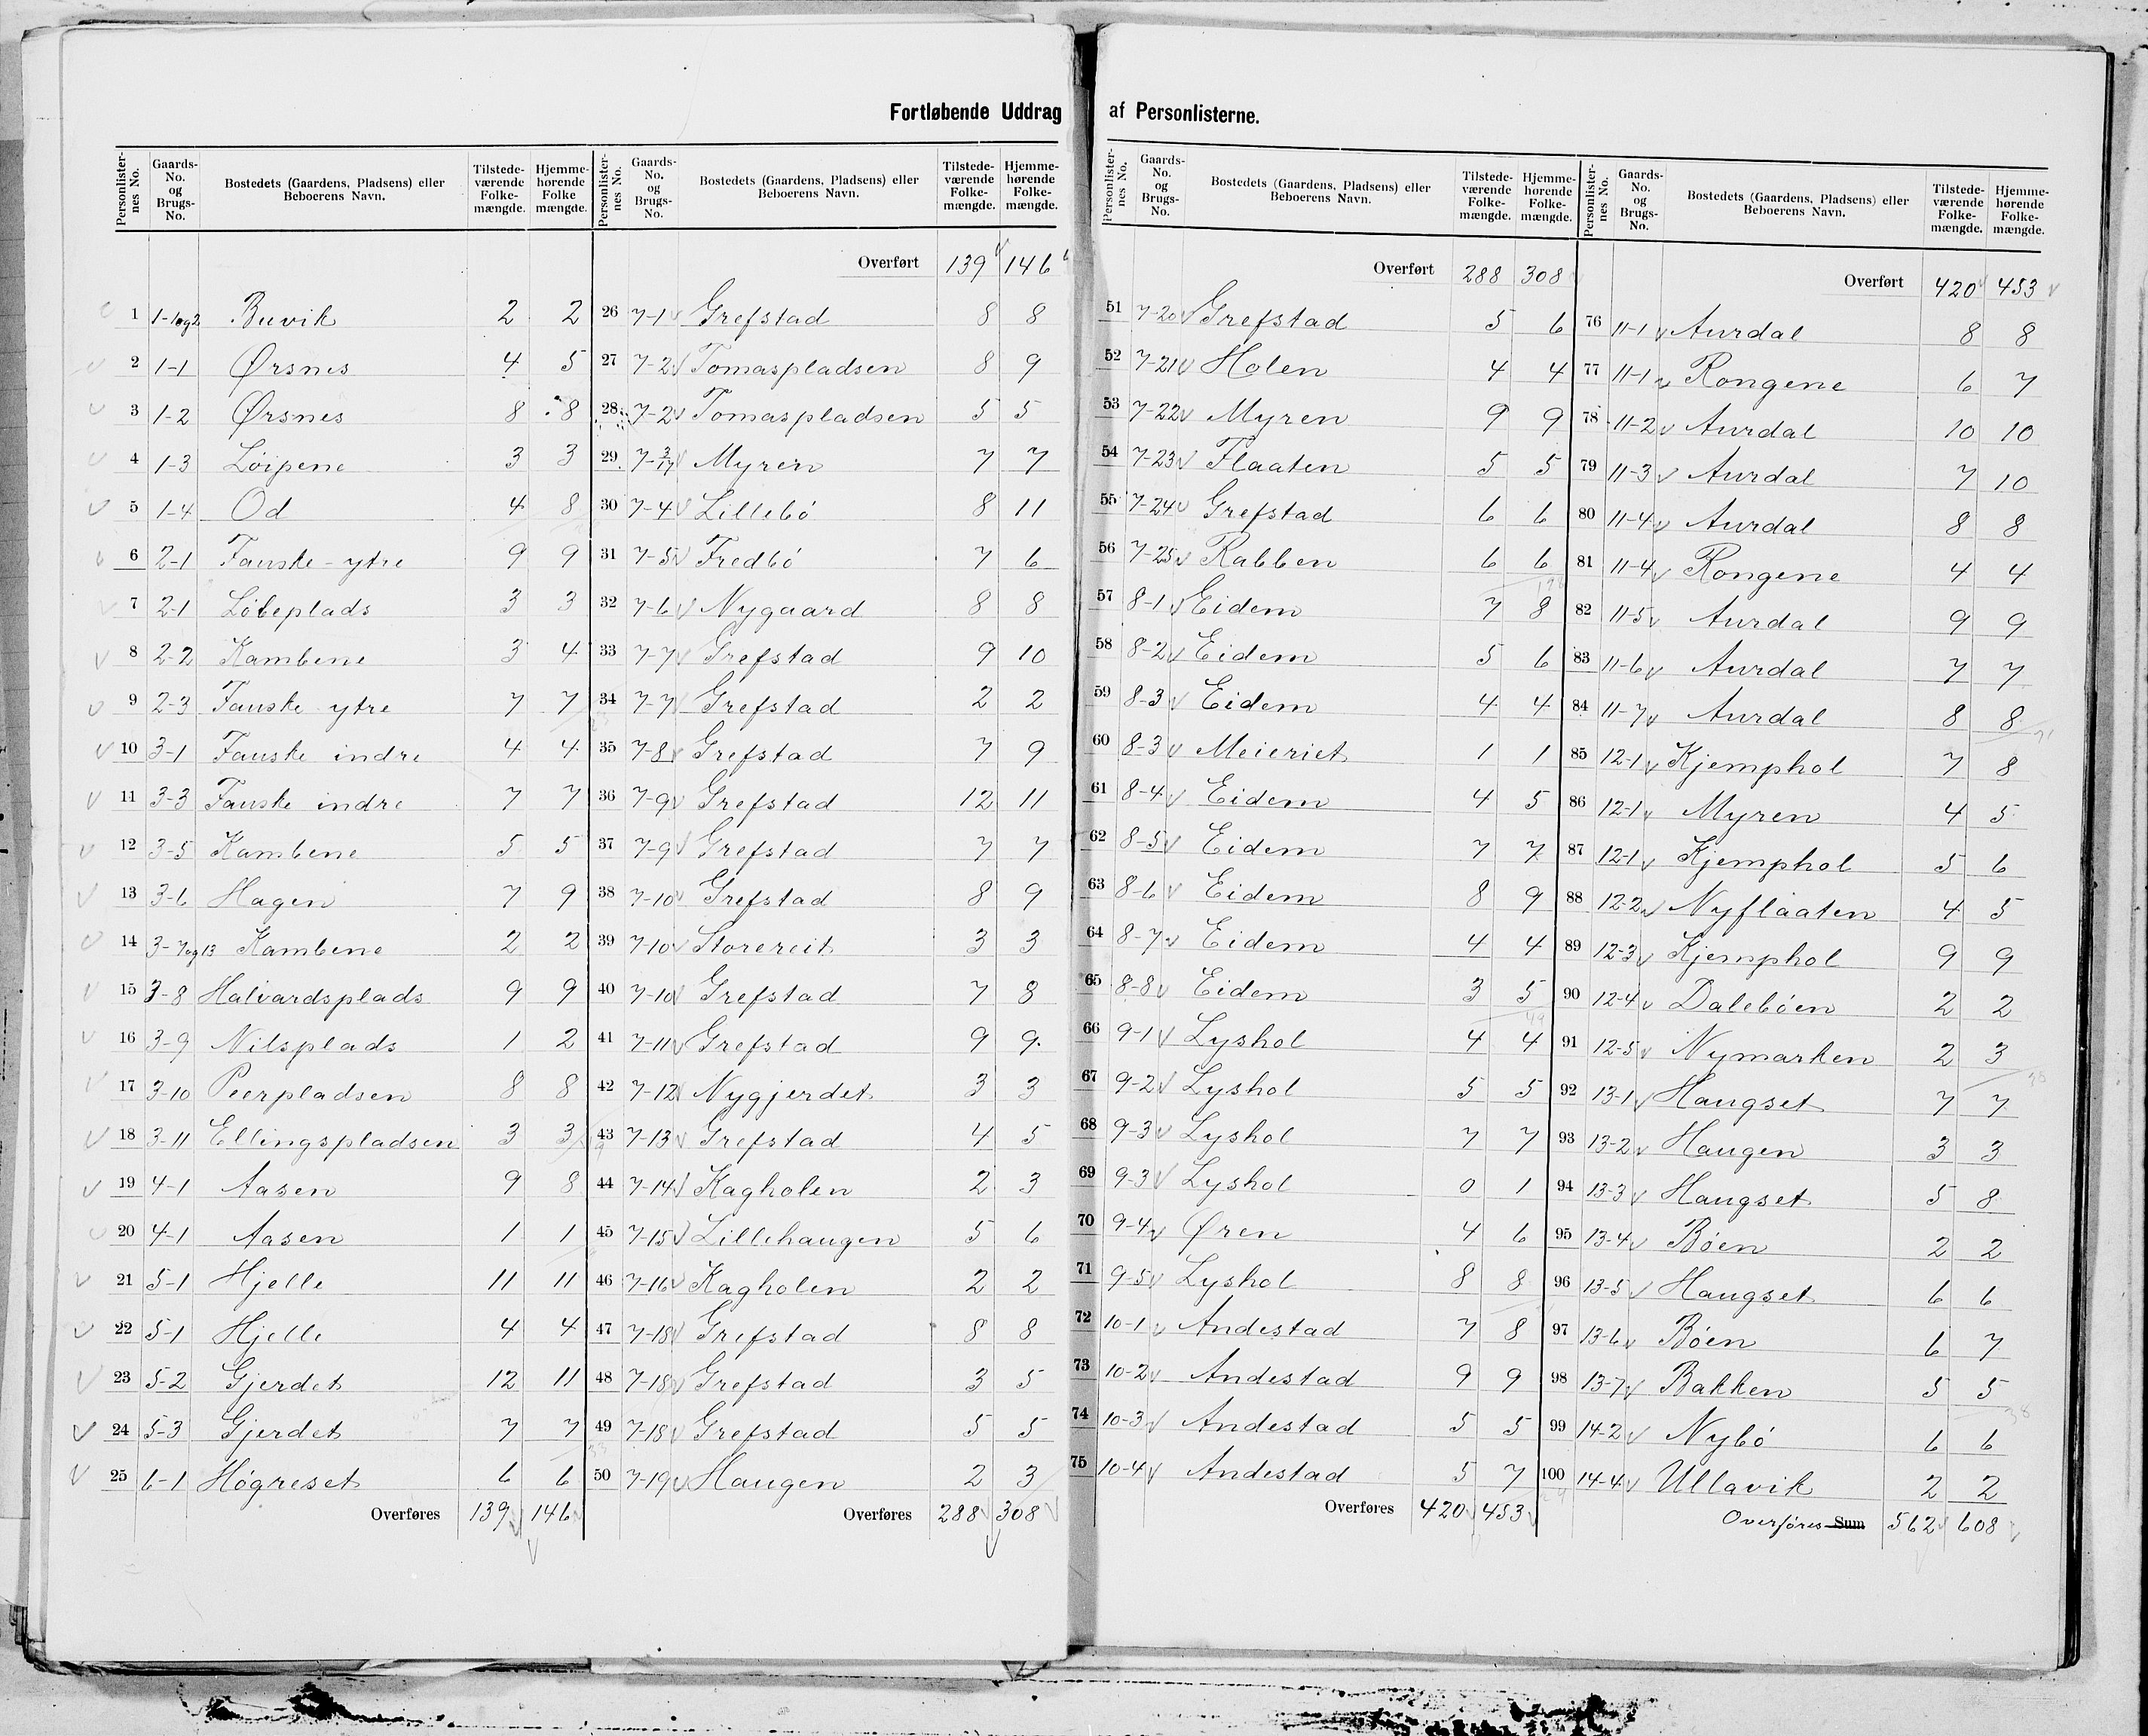 Fortløbende Uddrag af Personlisterne.
Personlister-nes No. Gaards-No. og Brugs-No. Bostedets (Gaardens, Pladsens) eller Beboerens Navn. Tilstede-værende Folke-mængde. Hjemme-hørende Folke mængde.
1 1-1og2 Buvik 2 2
2 1-1 Ørsnes 4 5
3 1-2 Ørsnes 8 8
4 1-3 Løipene 3 3
5 1-4 Od 4 8
6 2-1 Fauske-ytre 9 9
7 2-1 Løbeplads 3 3
8 2-2 Kambene 3 4
9 2-3 Fauske ytre 7 7
10 3-1 Fauske indre 4 4
11 3-3 Fauske indre 7 7
12 3-5 Kambene 5 5
13 3-6 Hagen 7 9
14 3-7og13 Kambene 2 2
15 3-8 Halvardsplads 9 9
16 3-9 Nilsplads 1 2
17 3-10 Peerpladsen 8 8
18 3-11 Ellingspladsen 3 3
19 4-1 Aasen 9 8
20 4-1 Aasen 1 1
21 5-1 Hjelle 11 11
22 5-1 Hjelle 4 4
23 5-2 Gjerdet 12 11
24 5-3 Gjerdet 7 7
25 6-1 Høgreset 6 6
Overføres 139 146
Personlister-nes No. Gaards-No. og Brugs-No. Bostedets (Gaardens, Pladsens) eller Beboerens Navn. Tilstede-værende Folke-mængde. Hjemme-hørende Folke-mængde.
Overført 139 146
26 7-1 Grefstad 8 8
27 7-2 Tomaspladsen 8 9
28 7-2 Tomaspladsen 5 5
29 7-3/17 Myren 7 7
30 7-4 Lillebø 8 11
31 7-5 Fredbø 7 6
32 7-6 Nygaard 8 8
33 7-7 Grefstad 9 10
34 7-7 Grefstad 2 2
35 7-8 Grefstad 7 9
36 7-9 Grefstad 12 11
37 7-9 Grefstad 7 7
38 7-10 Grefstad 8 9
39 7-10 Storereit 3 3
40 7-10 Grefstad 7 8
41 7-11 Grefstad 9 9
42 7-12 Nygjerdet 3 3
43 7-13 Grefstad 4 5
44 7-14 Kagholen 2 3
45 7-15 Lillehaugen 5 6
46 7-16 Kagholen 2 2
47 7-18 Grefstad 8 8
48 7-18 Grefstad 3 5
49 7-18 Grefstad 5 5
50 7-19 Haugen 2 3
Overføres 288 308
Personlister-nes No. Gaards-No. og Brugs-No. Bostedets (Gaardens, Pladsens) eller Beboerens Navn. Tilstede-værende Folke-mængde. Hjemme-hørende Folke-mængde.
Overført 288 308
51 7-20 Grefstad 5 6
52 7-21 Holen 4 4
53 7-22 Myren 9 9
54 7-23 Flaaten 5 5
55 7-24 Grefstad 6 6
56 7-25 Rabben 6 6
57 8-1 Eidem 7 8
58 8-2 Eidem 5 6
59 8-3 Eidem 4 4
60 8-3 Meieriet 1 1
61 8-4 Eidem 4 5
62 8-5 Eidem 7 7
63 8-6 Eidem 8 9
64 8-7 Eidem 4 4
65 8-8 Eidem 3 5
66 9-1 Lyshol 4 4
67 9-2 Lyshol 5 5
68 9-3 Lyshol 7 7
69 9-3 Lyshol 0 1
70 9-4 Øren 4 6
71 9-5 Lyshol 8 8
72 10-1 Andestad 7 8
73 10-2 Andestad 9 9
74 10-3 Andestad 5 5
75 10-4 Andestad 5 7
Overføres 420 453
Personlister-nes No. Gaards-No. og Brugs-No. Bostedets (Gaardens, Pladsens) eller Beboerens Navn. Tilstede-værende Folke-mængde. Hjemme-hørende Folke-mængde.
Overført 420 453
76 11-1 Aurdal 8 8
77 11-1 Rongene 6 7
78 11-2 Aurdal 10 10
79 11-3 Aurdal 7 10
80 11-4 Aurdal 8 8
81 11-4 Rongene 4 4
82 11-5 Aurdal 9 9
83 11-6 Aurdal 7 7
84 11-7 Aurdal 8 8
85 12-1 Kjemphol 7 8
86 12-1 Myren 4 5
87 12-1 Kjemphol 5 6
88 12-2 Nyflaaten 4 5
89 12-3 Kjemphol 9 9
90 12-4 Dalebøen 2 2
91 12-5 Nymarken 2 3
92 13-1 Haugset 7 7
93 13-2 Haugen 3 3
94 13-3 Haugset 5 8
95 13-4 Bøen 2 2
96 13-5 Haugset 6 6
97 13-6 Bøen 6 7
98 13-7 Bakken 5 5
99 14-2 Nybø 6 6
100 14-4 Ullavik 2 2
Overføres Sum 562 608